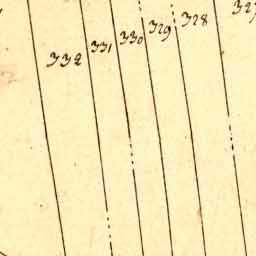 332 331 330 329 328 327